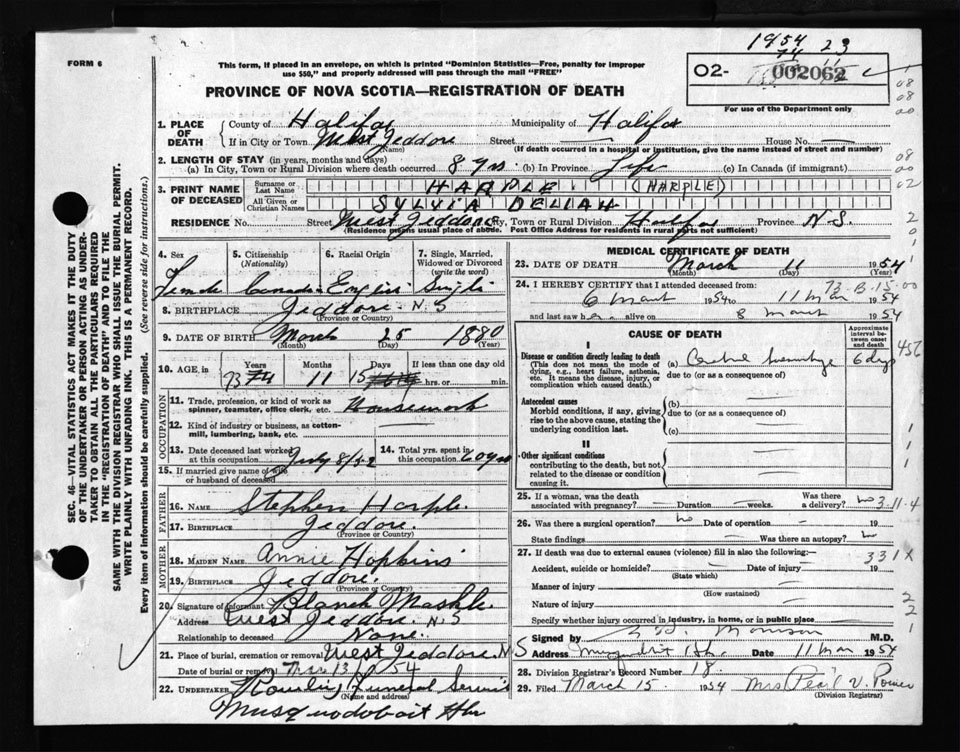 1954
74 23
FORM 6
This form, if placed in an envelope, on which is printed "Dominion Statistics—Free, penalty for improper
use $50," and properly addressed will pass through the mail "FREE"
O2- 002062
For use of the Department only
PROVINCE OF NOVA SCOTIA—REGISTRATION OF DEATH
1. PLACE OF DEATH { County of Halifax Municipality of Halifax
If in City or Town West Jeddore (Name) Street House No.
(If death occurred in a hospital or institution, give the name instead of street and number)
2. LENGTH OF STAY (in years, months and days)
(a) In City, Town or Rural Division where death occurred 8 yrs (b) In Province Life (c) In Canada (if immigrant)
3. PRINT NAME OF DECEASED { Surname or Last Name HARPLE (HARPLE)
All Given or Christian Names SYLVIA DELLAH
RESIDENCE No. Street West Jeddore City, Town or Rural Division Halifax Province N.S.
(Residence means usual place of abode. Post Office Address for residents in rural parts not sufficient)
4. Sex 5. Citizenship (Nationality) 6. Racial Origin 7. Single, Married, Widowed or Divorced (write the word)
Female Canadian English Single
8. BIRTHPLACE Jeddore N.S
(Province or Country)
9. DATE OF BIRTH March 25 1880
(Month) (Day) (Year)
10. AGE, in { Years Months Days If less than one day old
73 74 11 15 hrs. or min.
OCCUPATION
11. Trade, profession, or kind of work as spinner, teamster, office clerk, etc. Housework
12. Kind of industry or business, as cotton-mill, lumbering, bank, etc.
13. Date deceased last worked at this occupation July 8/52 14. Total yrs. spent in this occupation 60 yrs
15. If married give name of wife or husband of deceased
FATHER
16. NAME Stephen Harple
17. BIRTHPLACE Jeddore.
(Province or Country)
MOTHER
18. MAIDEN NAME Annie Hopkins
19. BIRTHPLACE Jeddore.
(Province or Country)
20. Signature of informant Blanch
Address West Jeddore N.S
Relationship to deceased None.
21. Place of burial, cremation or removal West Jeddore N.S
Date of burial or removal Mar 13 1954
22. UNDERTAKER Funeral Service
(Name and address)
Musquodoboit Hbr
MEDICAL CERTIFICATE OF DEATH
23. DATE OF DEATH March 11 1954
(Month) (Day) (Year)
73-B-15-00
24. I HEREBY CERTIFY that I attended deceased from:
6 March 1954 to 11 Mar 1954
and last saw her alive on 8 March 1954
CAUSE OF DEATH Approximate interval between onset and death
I
Disease or condition directly leading to death (This does not mean the mode of dying, e.g., heart failure, asthenia, etc. It means the disease, injury, or complication which caused death.)
(a) Cerebral hemorrhage 6 days
due to (or as a consequence of)
Antecedent causes
Morbid conditions, if any, giving rise to the above cause, stating the underlying condition last.
(b)
due to (or as a consequence of)
(c)
II
Other significant conditions
contributing to the death, but not related to the disease or condition causing it.
25. If a woman, was the death associated with pregnancy? Duration weeks. Was there a delivery? no
3.11.4
26. Was there a surgical operation? no Date of operation 19
State findings Was there an autopsy? no
27. If death was due to external causes (violence) fill in also the following:—
331X
Accident, suicide or homicide? Date of injury 19
(State which)
Manner of injury
(How sustained)
Nature of injury
Specify whether injury occurred in industry, in home, or in public place
Signed by Morrison M.D.
Address Date 11 Mar 1954
28. Division Registrar's Record Number 18.
29. Filed March 15. 1954 Mrs Pearl V. Power
(Division Registrar)
SEC. 46—VITAL STATISTICS ACT MAKES IT THE DUTY
OF THE UNDERTAKER OR PERSON ACTING AS UNDERTAKER
TO OBTAIN ALL THE PARTICULARS REQUIRED
IN THE "REGISTRATION OF DEATH" AND TO FILE THE
SAME WITH THE DIVISION REGISTRAR WHO SHALL ISSUE THE BURIAL PERMIT.
WRITE PLAINLY WITH UNFADING INK. THIS IS A PERMANENT RECORD.
Every item of information should be carefully supplied. (See reverse side for instructions.)